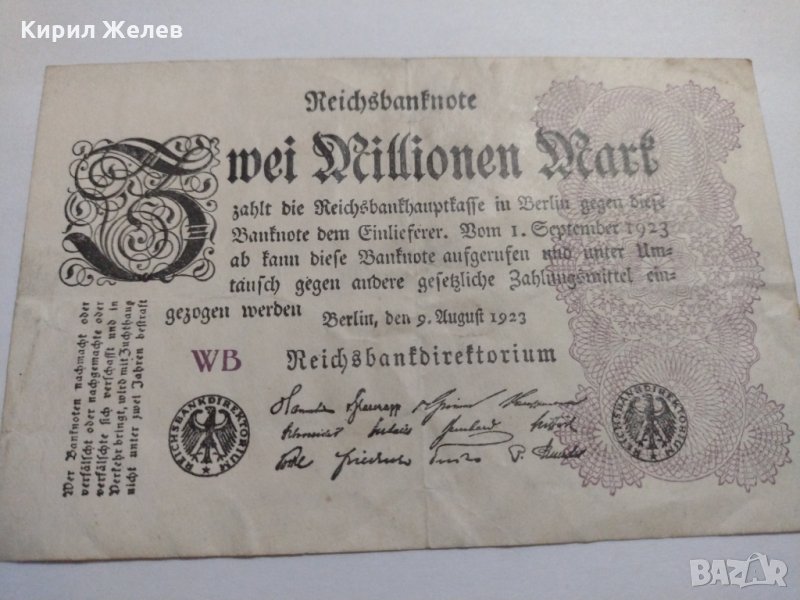 Кирил Желев
Reichsbanknote
Zwei Millionen Mark
zahlt die Reichsbankhauptkasse in Berlin gegen diese
Banknote dem Einlieferer. Vom 1. September 1923
ab kann diese Banknote aufgerufen und unter Um-
tausch gegen andere gesetzliche Zahlungsmittel ein-
gezogen werden
Berlin, den 9. August 1923
WB Reichsbankdirektorium
Wer Banknoten nachmacht oder
verfälscht oder nachgemachte oder
verfälschte sich verschafft und in
Verkehr bringt, wird mit Zuchthaus
nicht unter zwei Jahren bestraft
REICHSBANKDIREKTORIUM
REICHSBANKDIREKTORIUM
BAZAR